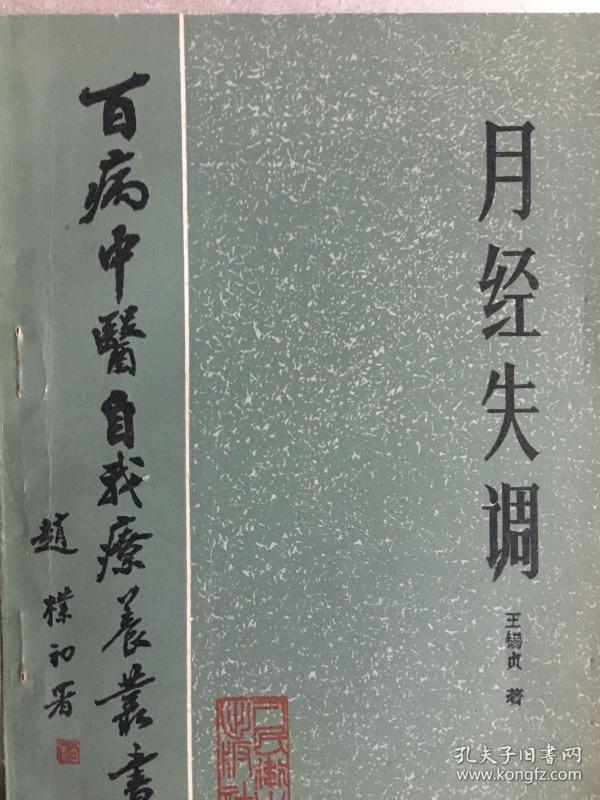 百病中醫自我療養叢書
趙樸初署
月经失调
王锡贞 著
人民衛生出版社
孔夫子旧书网
www.kongfz.com